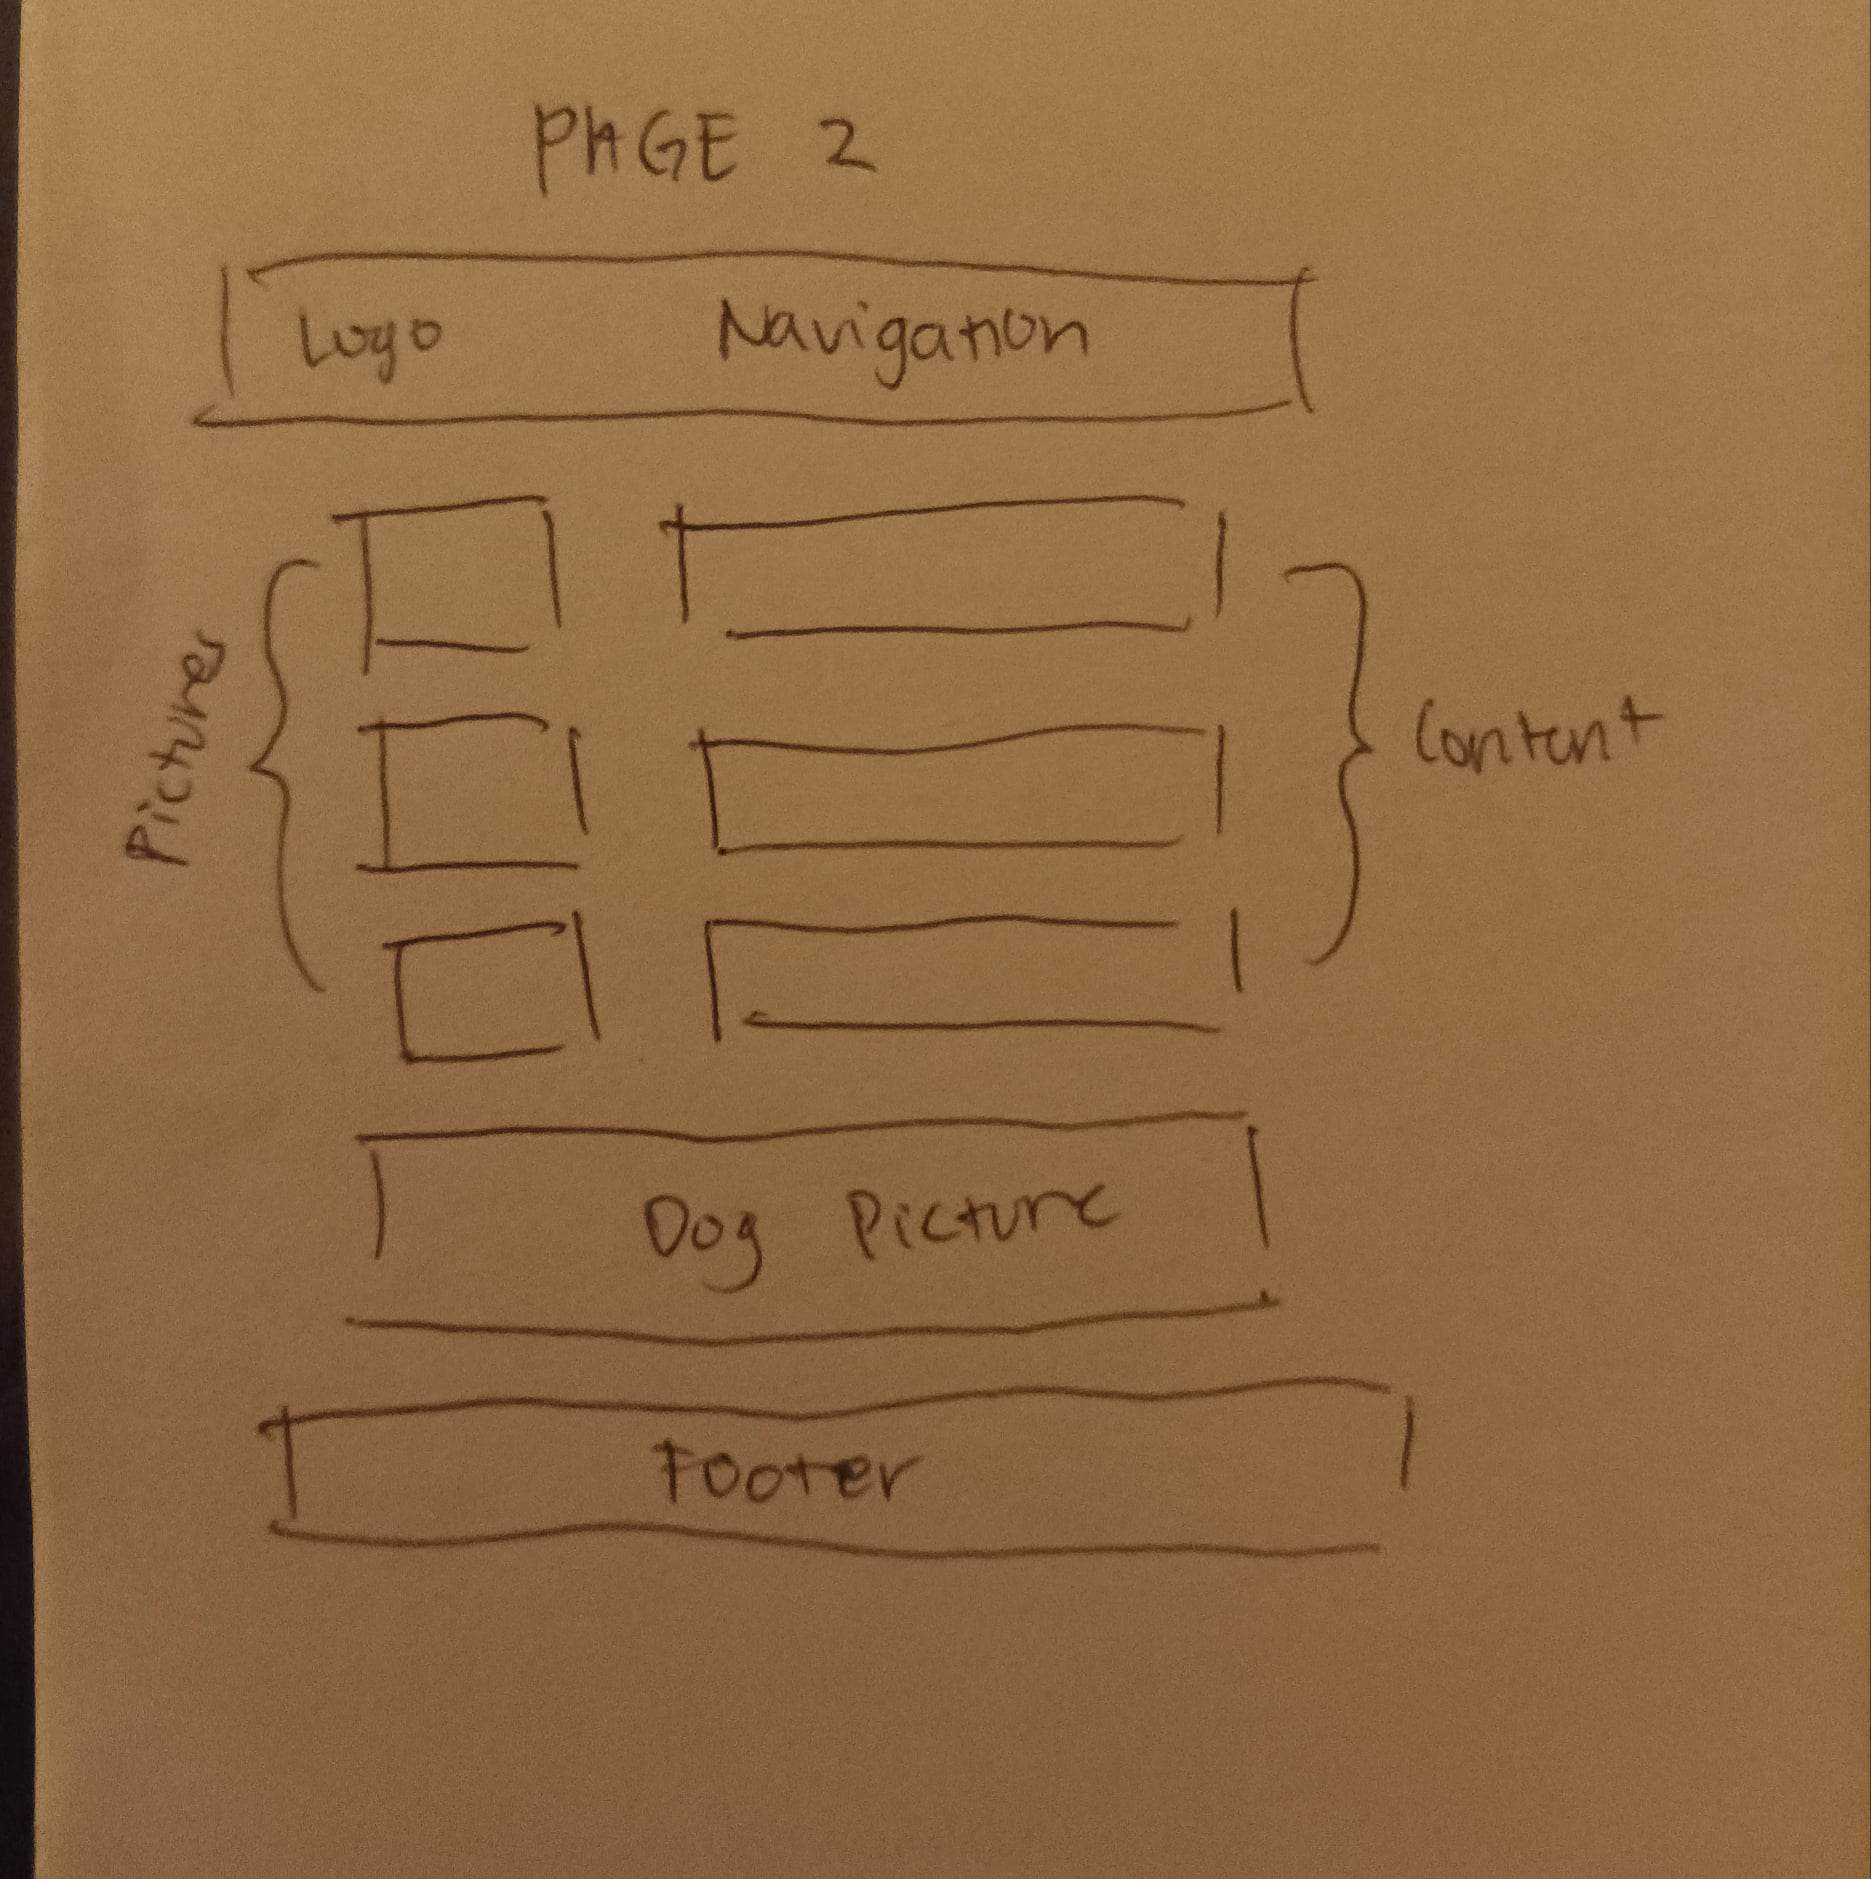 PAGE 2
Logo Navigation
Pictures
Content
Dog Picture
Footer